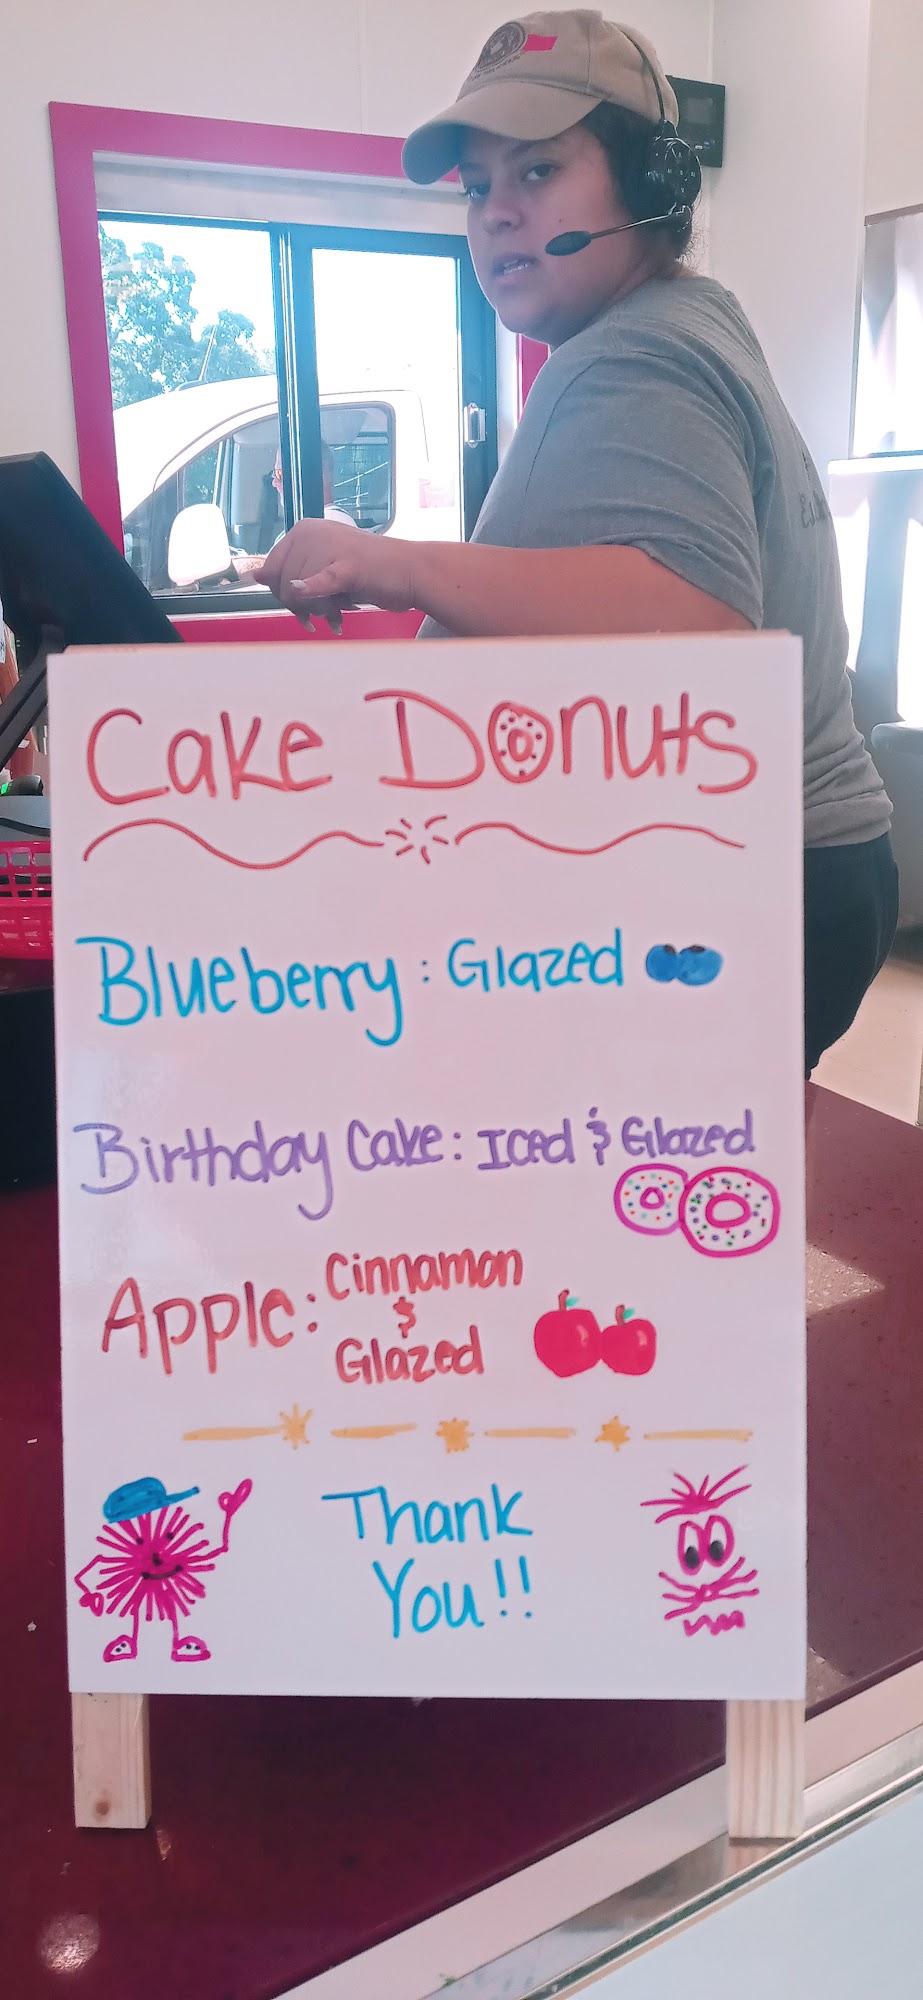 Cake Donuts
Blueberry: Glazed
Birthday Cake: Iced & Glazed
Apple: Cinnamon
&
Glazed
Thank
You!!